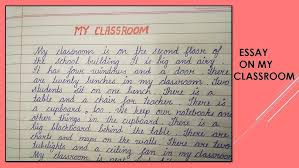 MY CLASSROOM
My classroom is on the second floor of
the school building. It is big and airy.
It has four windows and a door. There
are twenty benches in my classroom. Two
students sit on one bench. There is a
table and a chair for teacher. There is
a cupboard, too. We keep our notebooks and
other things in the cupboard. There is a
big blackboard behind the table. There are
charts and maps on the walls. There are two
tubelights and a ceiling fan in my classroom
My classroom is
ESSAY
ON MY
CLASSROOM